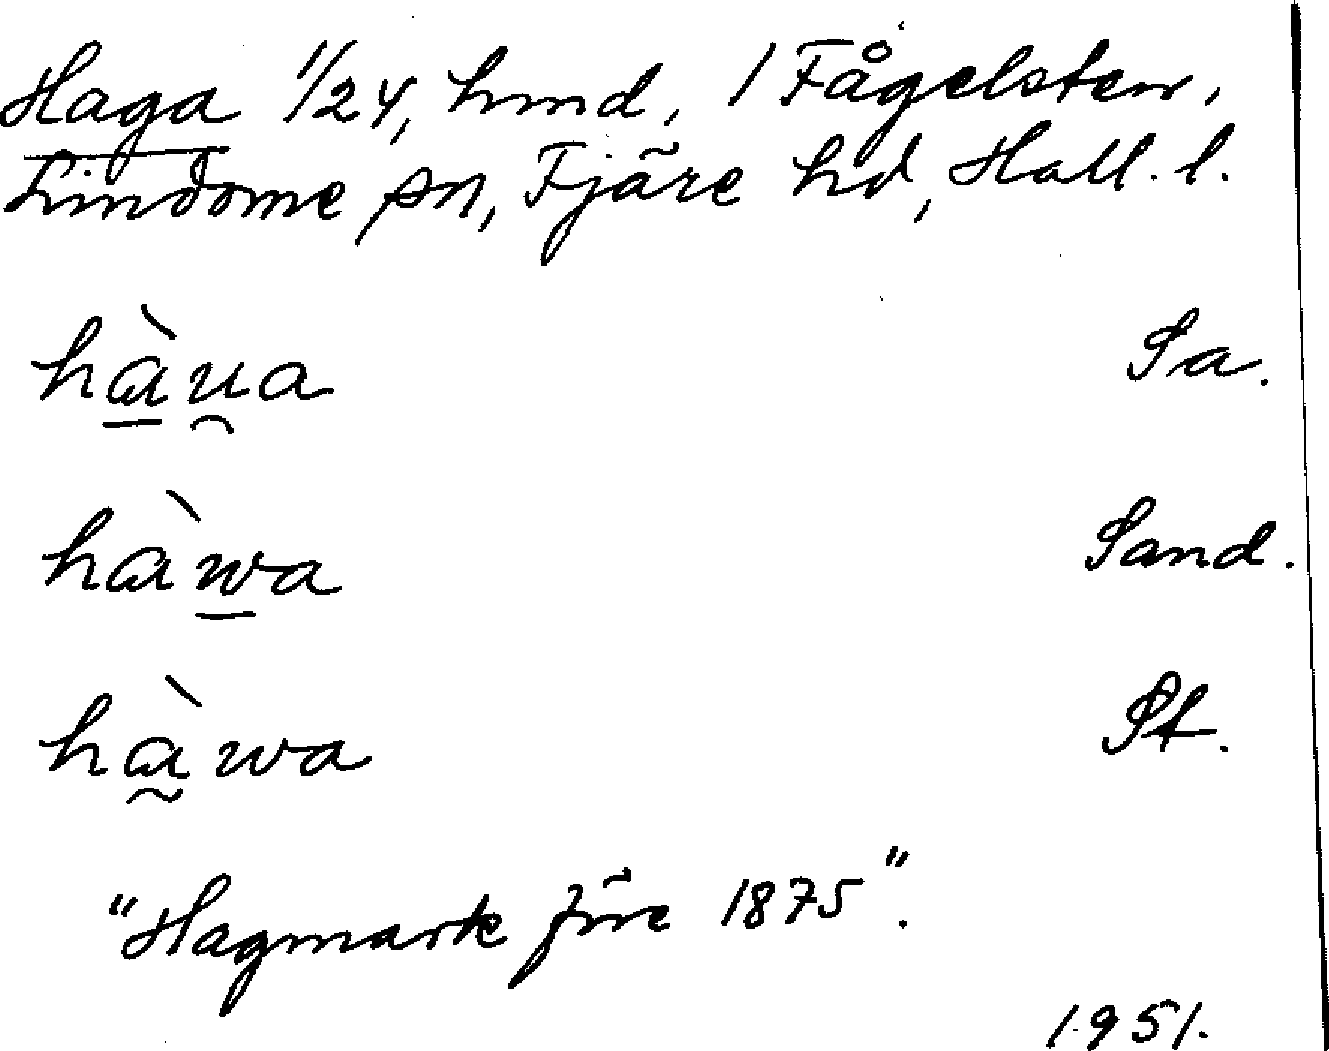 Haga 1/24, hmd, 1 Fågelsten,
Lindome sn, Fjäre hd, Hall. l.
hàu̯a Sa.
hàwa Sand.
hàwa St.
"Hagmark före 1875".
1951.